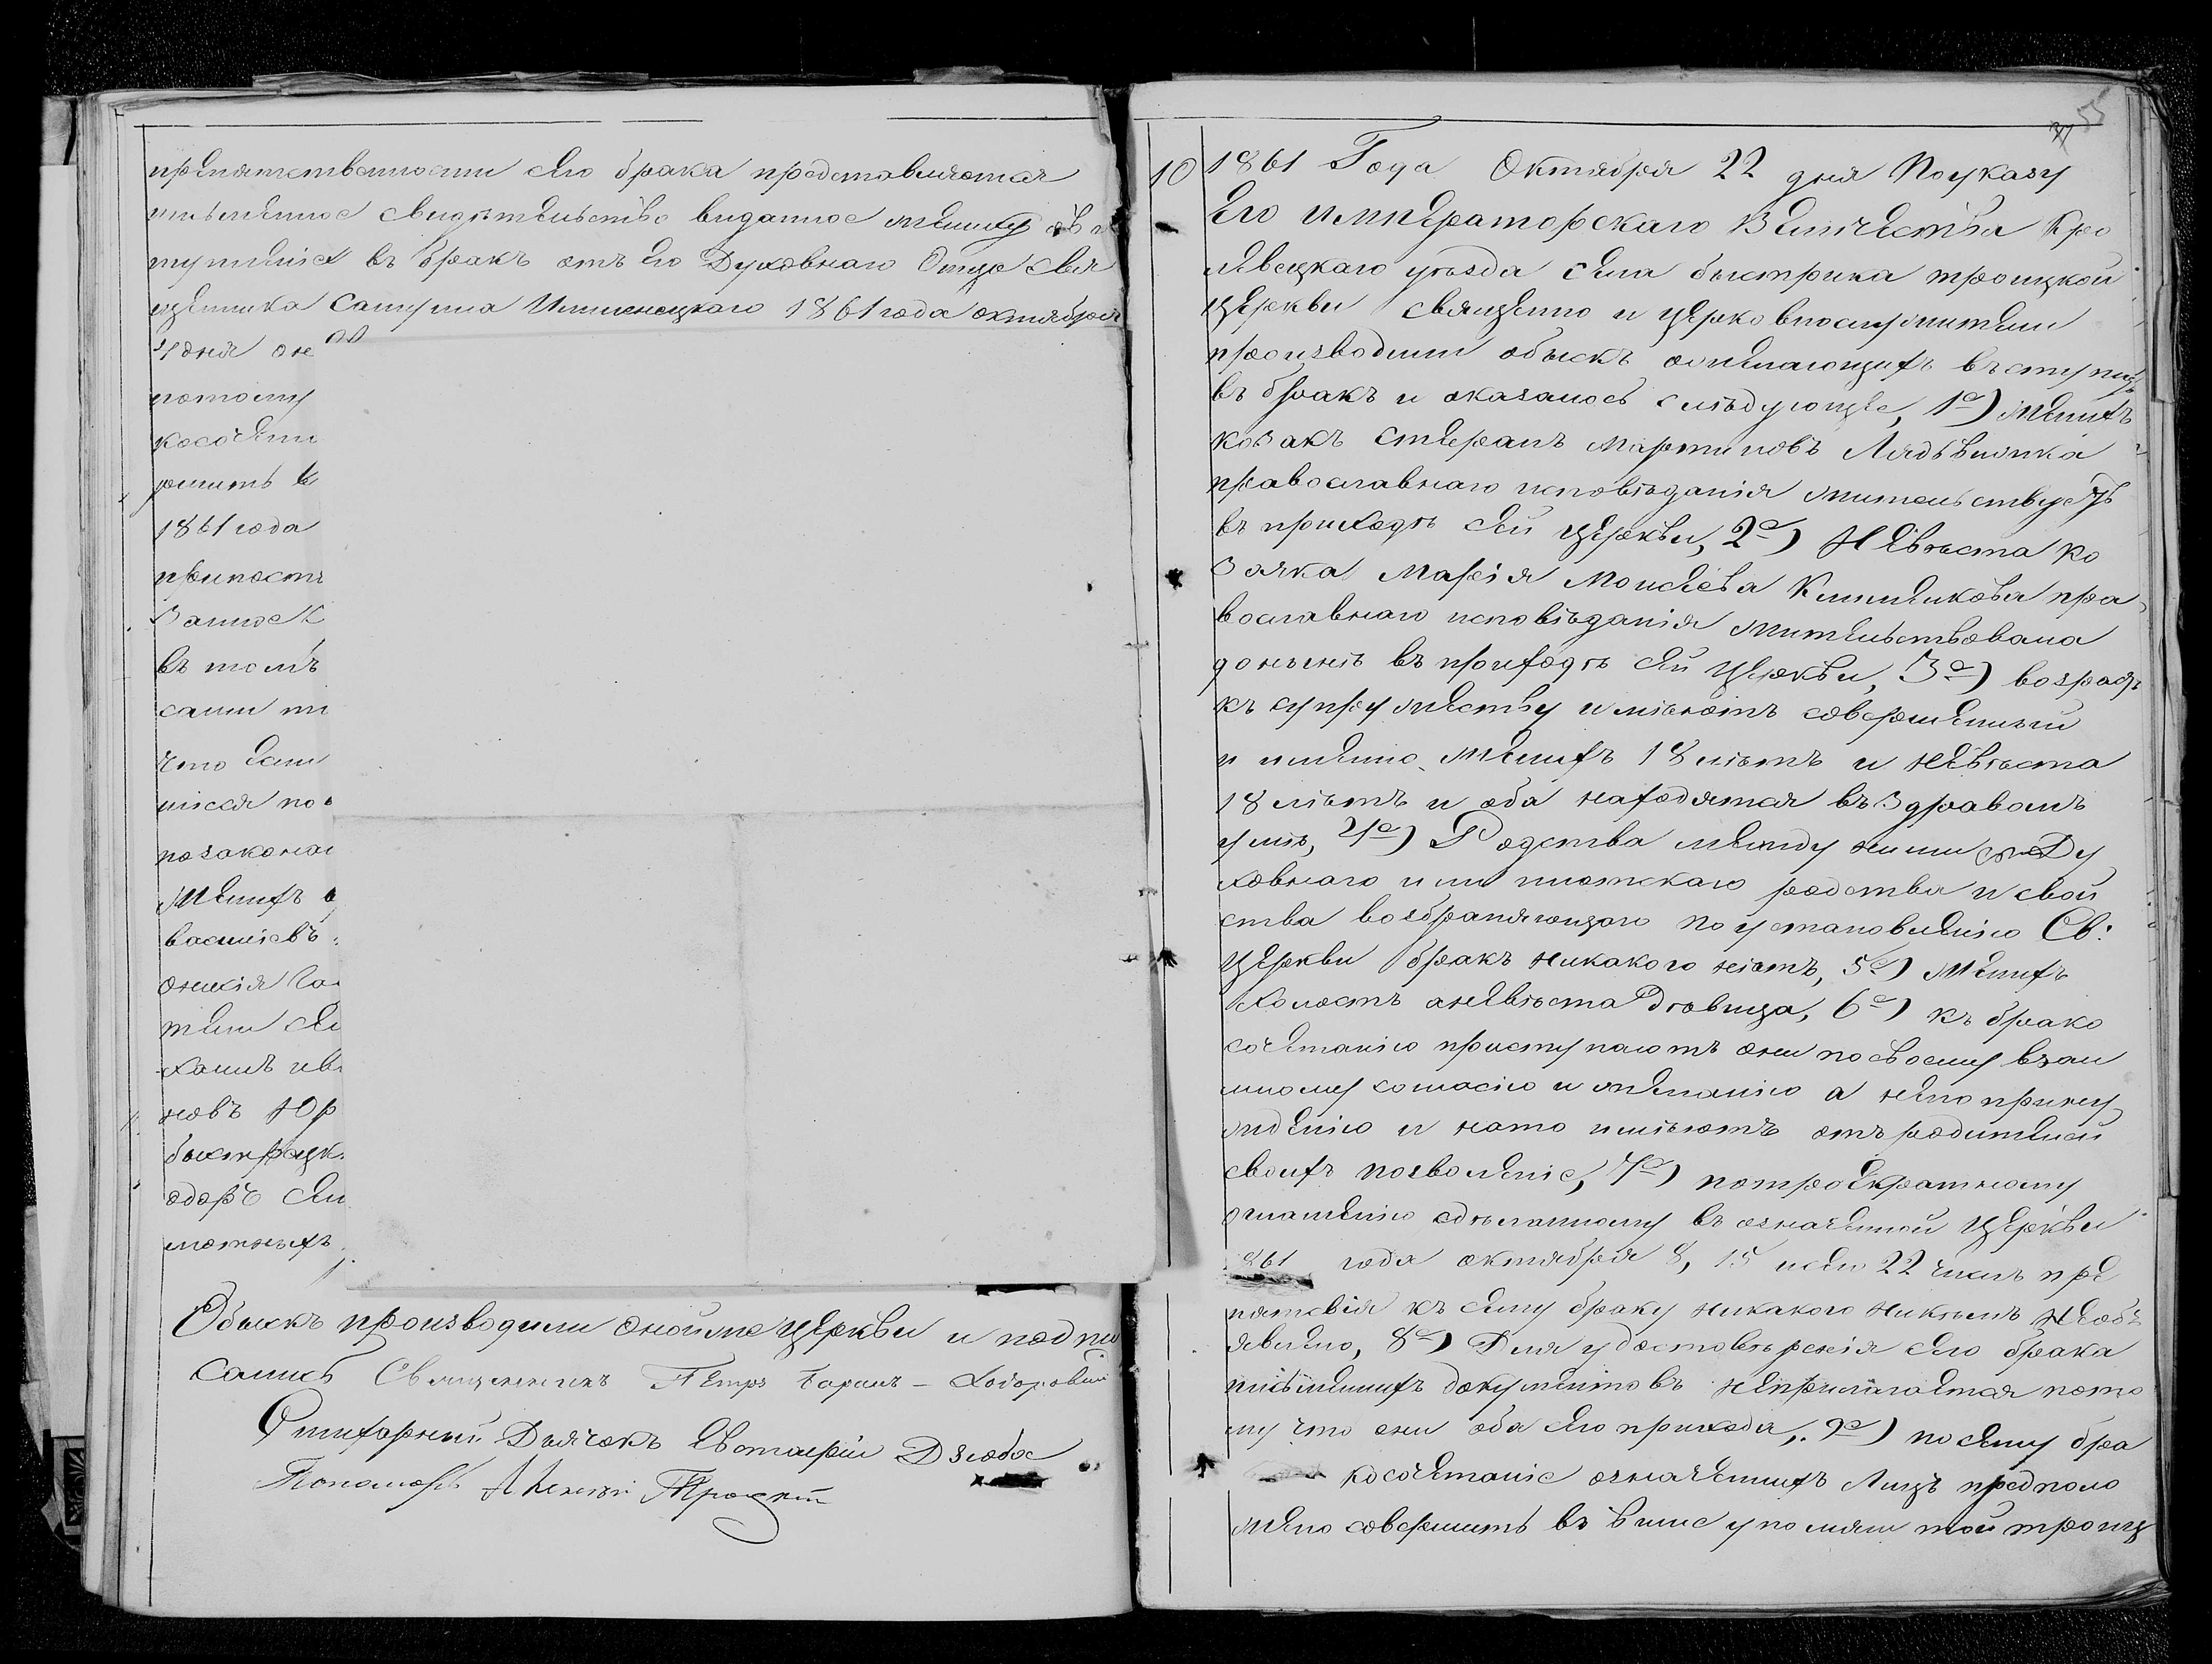 препятственности сего брака представляется
письменное свидетельство виданное жениху
туплению въ бракъ отъ его Духовнаго Отца свя
щенника 1861 года октября
4 дня
потому
косочета
1861 года
въ томъ
сами
что если
по
позаконам
Женихъ
васильевъ
новъ Юр
быстрицк
едоръ
мотныхъ
Обыскъ производили оной же церкви и подпи
сались Священникъ Петръ
Дьячокъ Евстафiй Дзюба
Пономарь
55
10 1861 Года Октября 22 дня По указу
Его императорскаго Величества Кро
левецкаго уезда села быстрика троицкой
церкви священно и церковнослужители
производили обыскъ о желающихъ вступить
въ бракъ и оказалось следующее, 1е) Женихъ
козакъ Стефанъ Мартиновъ
православнаго исповеданiя жительствуетъ
въ приходе сей церкви, 2е) Невеста ко
зачка Марiя Моисеева пра
вославнаго исповеданiя жительствовала
доныне въ приходе сей церкви, 3е) возрастъ
къ супружеству имеютъ совершенный
и именно женихъ 18 летъ и невеста
18 летъ и оба находятся въ здравомъ
уме, 4е) Родства между ними Ду
ховнаго или плотскаго родства и свой
ства возбраняющаго по установленiю Св:
церкви бракъ никакого нетъ, 5е) женихъ
холостъ а невеста Девица, 6е) къ брако
сочетанiю приступаютъ они по своему взаи
мному согласiю и желанiю а не по прину
жденiю и на то имеютъ отъ родителей
своихъ позволенiе, 7е) по троекратному
оглашенiю сделанному въ означенной церкви
861 года октября 8, 15 и сего 22 числъ пре
пятствiя къ сему браку никакого никемъ необъ
явлено, 8е) Для удостоверенiя сего брака
письменныхъ документовъ неприлагается пото
му что они оба сего прихода, 9е) по сему бра
косочетанiе означенныхъ Лицъ предполо
жено совершить въ выше упомянутой троиц